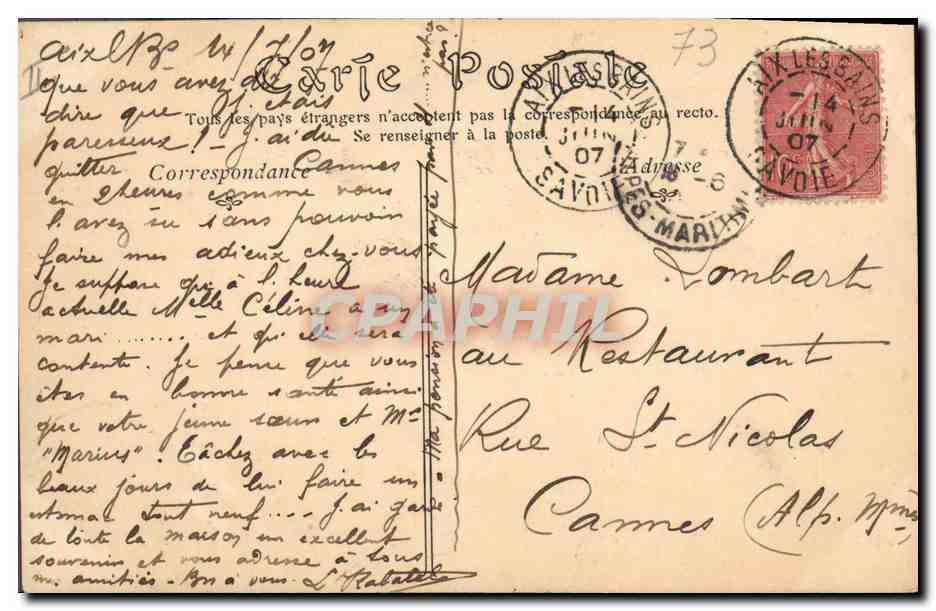 Aix l. B. 14/7/07
73
II
Carte Postale
Tous les pays étrangers n'acceptent pas la correspondance au recto.
Se renseigner à la poste.
Correspondance
Adresse
que vous avez du
dire que j'étais
paresseux! - J'ai dû
quitter Cannes
en 2 heures comme vous
l'avez su sans pouvoir
faire mes adieux chez-vous
Je suppose qu'à l'heure
actuelle Melle Céline a un
mari ......... et qu'elle sera
contente. Je pense que vous
êtes en bonne santé ainsi
que votre jeune soeur et Mr
"Marius". Tâchez avec les
beaux jours de lui faire un
estomac tout neuf.... J'ai gardé
de toute la maison un excellent
souvenir et vous adresse à tous
mes amitiés - Bn à vous -
Ma pension a payée
AIX-LES-BAINS
14
JUIN
07
SAVOIE
AIX-LES-BAINS
14
JUIN
07
SAVOIE
-6
ALPES-MARITIMES
Madame Lombart
au Restaurant
Rue St Nicolas
Cannes (Alp. Mmes)
CPAPHIL